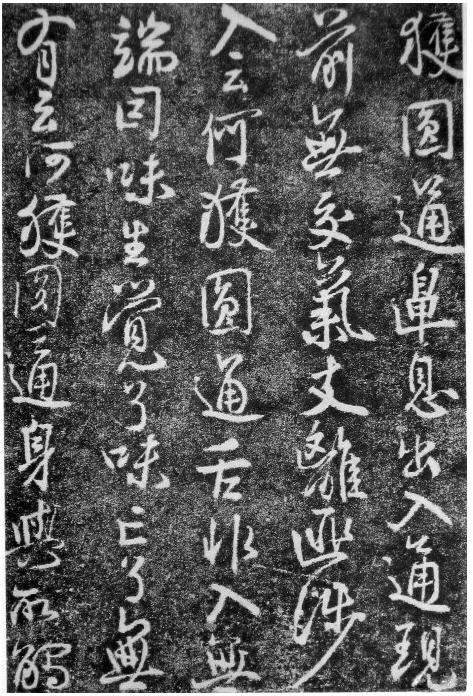 獲圓通鼻息出入通現
前無交氣支離匪涉
入云何獲圓通舌非入無
端因味生覺了味亡了無
有云何獲圓通身與所觸